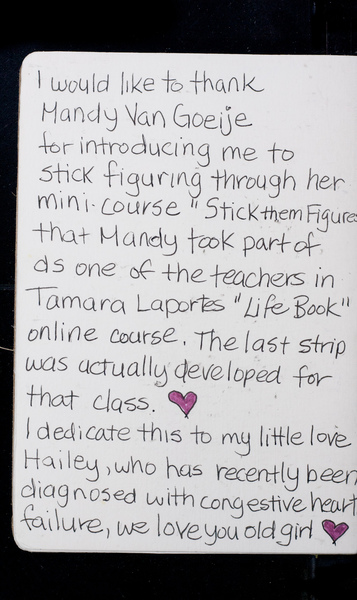 I would like to thank
Mandy Van Goeije
for introducing me to
stick figuring through her
mini-course "Stick them Figures
that Mandy took part of
as one of the teachers in
Tamara Laportes "Life Book"
online course. The last strip
was actually developed for
that class.
I dedicate this to my little love
Hailey, who has recently been
diagnosed with congestive heart
failure, we love you old girl